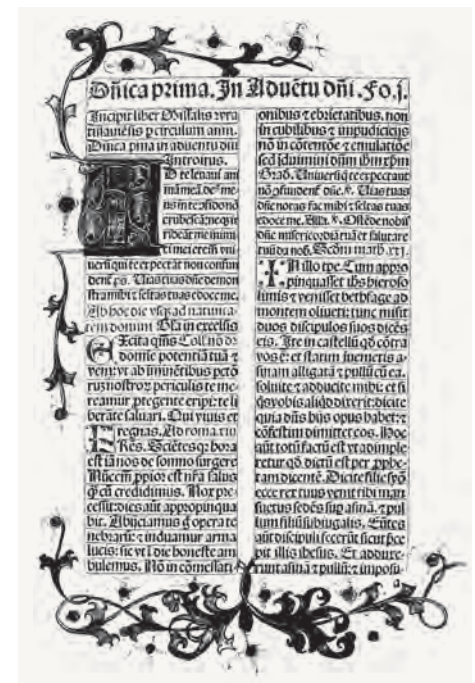 Dñica prima. In Aduẽtu dñi. Fo. j.
Incipit liber Missalis wra
tislauiẽsis p circulum anni.
Dñica pma in aduentu dñi
Introitus.
AD te leuaui ani
mã meã. deꝰ me
us in te ꝯfido nõ
erubescã: neqꝫ ir
rideãt me inimi
ci mei etem̃ vni
uersi qui te expectãt non confun
dent̃ ps. Uias tuas dñe demon
stra mihi ⁊ seĩtas tuas edoce me.
Ab hoc die vsqꝫ ad natiuita
tem domini Gl'ia in excelsis
EXcita q̃us Coll'.
domĩe potentiã tuã ⁊
veni: vt ab ĩminẽtibus pctõ
rũ nostroꝝ periculis te me
reamur ꝓtegente eripi: te li
berãte saluari. Qui viuis et
regnas. Ad roma. xiij
FRes. Sciẽtes qꝛ hora
est iã nos de somno surgere
Nũc em̃ ꝓpioꝛ est nr̃a salus
q̃ cũ credidimus. Nox p̃ce
cessit: dies aũt appropinqua
bit. Abijciamus g̊ opera te
nebrarũ: ⁊ induamur arma
lucis: sic vt ĩ die honeste am
bulemus. Nõ in cõmessati
onibus ⁊ ebrietatibus. non
in cubilibus ⁊ impudicicijs
nõ in cõtentõe ⁊ emulatiõe
sed ĩduimini dñm ihm xp̃m
Grad'. Uniuersi q̃ te expectant
nõ ꝯfundent̃ dñe. ℣. Uias tuas
dñe notas fac mihi ⁊ seĩtas tuas
edoce me. Alla. ℣. Oñde nobis
dñe misericordiã tuã et salutare
tuũ da nob̃. Scd̃m math. xxj.
IN illo tp̃e. Cum appro
pinquasset ihs hieroso
limis ⁊ venisset bethfage ad
montem oliueti: tunc misit
duos discipulos suos dicẽs
eis. Ite in castellũ qd̃ cõtra
vos ẽ: et statim inuenietis a
sinam alligatã ⁊ pullũ cũ ea.
soluite ⁊ adducite mihi: et si
q̃s vobis aliqd̃ dixerit: dicite
quia dñs hijs opus habet: ⁊
cõfestim dimittet eos. Hoc
aũt totũ factũ est vt adimple
retur qd̃ dictũ est per ꝓphe
tam dicentẽ. Dicite filie syõ
ecce rex tuus venit tibi man
suetus sedẽs sup asinã. ⁊ pul
lum filiũ subiugalis. Eũtes
aũt discipuli fecerũt sicut p̃ce
pit illis ihesus. Et adduxe
runt asinã ⁊ pullũ: ⁊ imposu